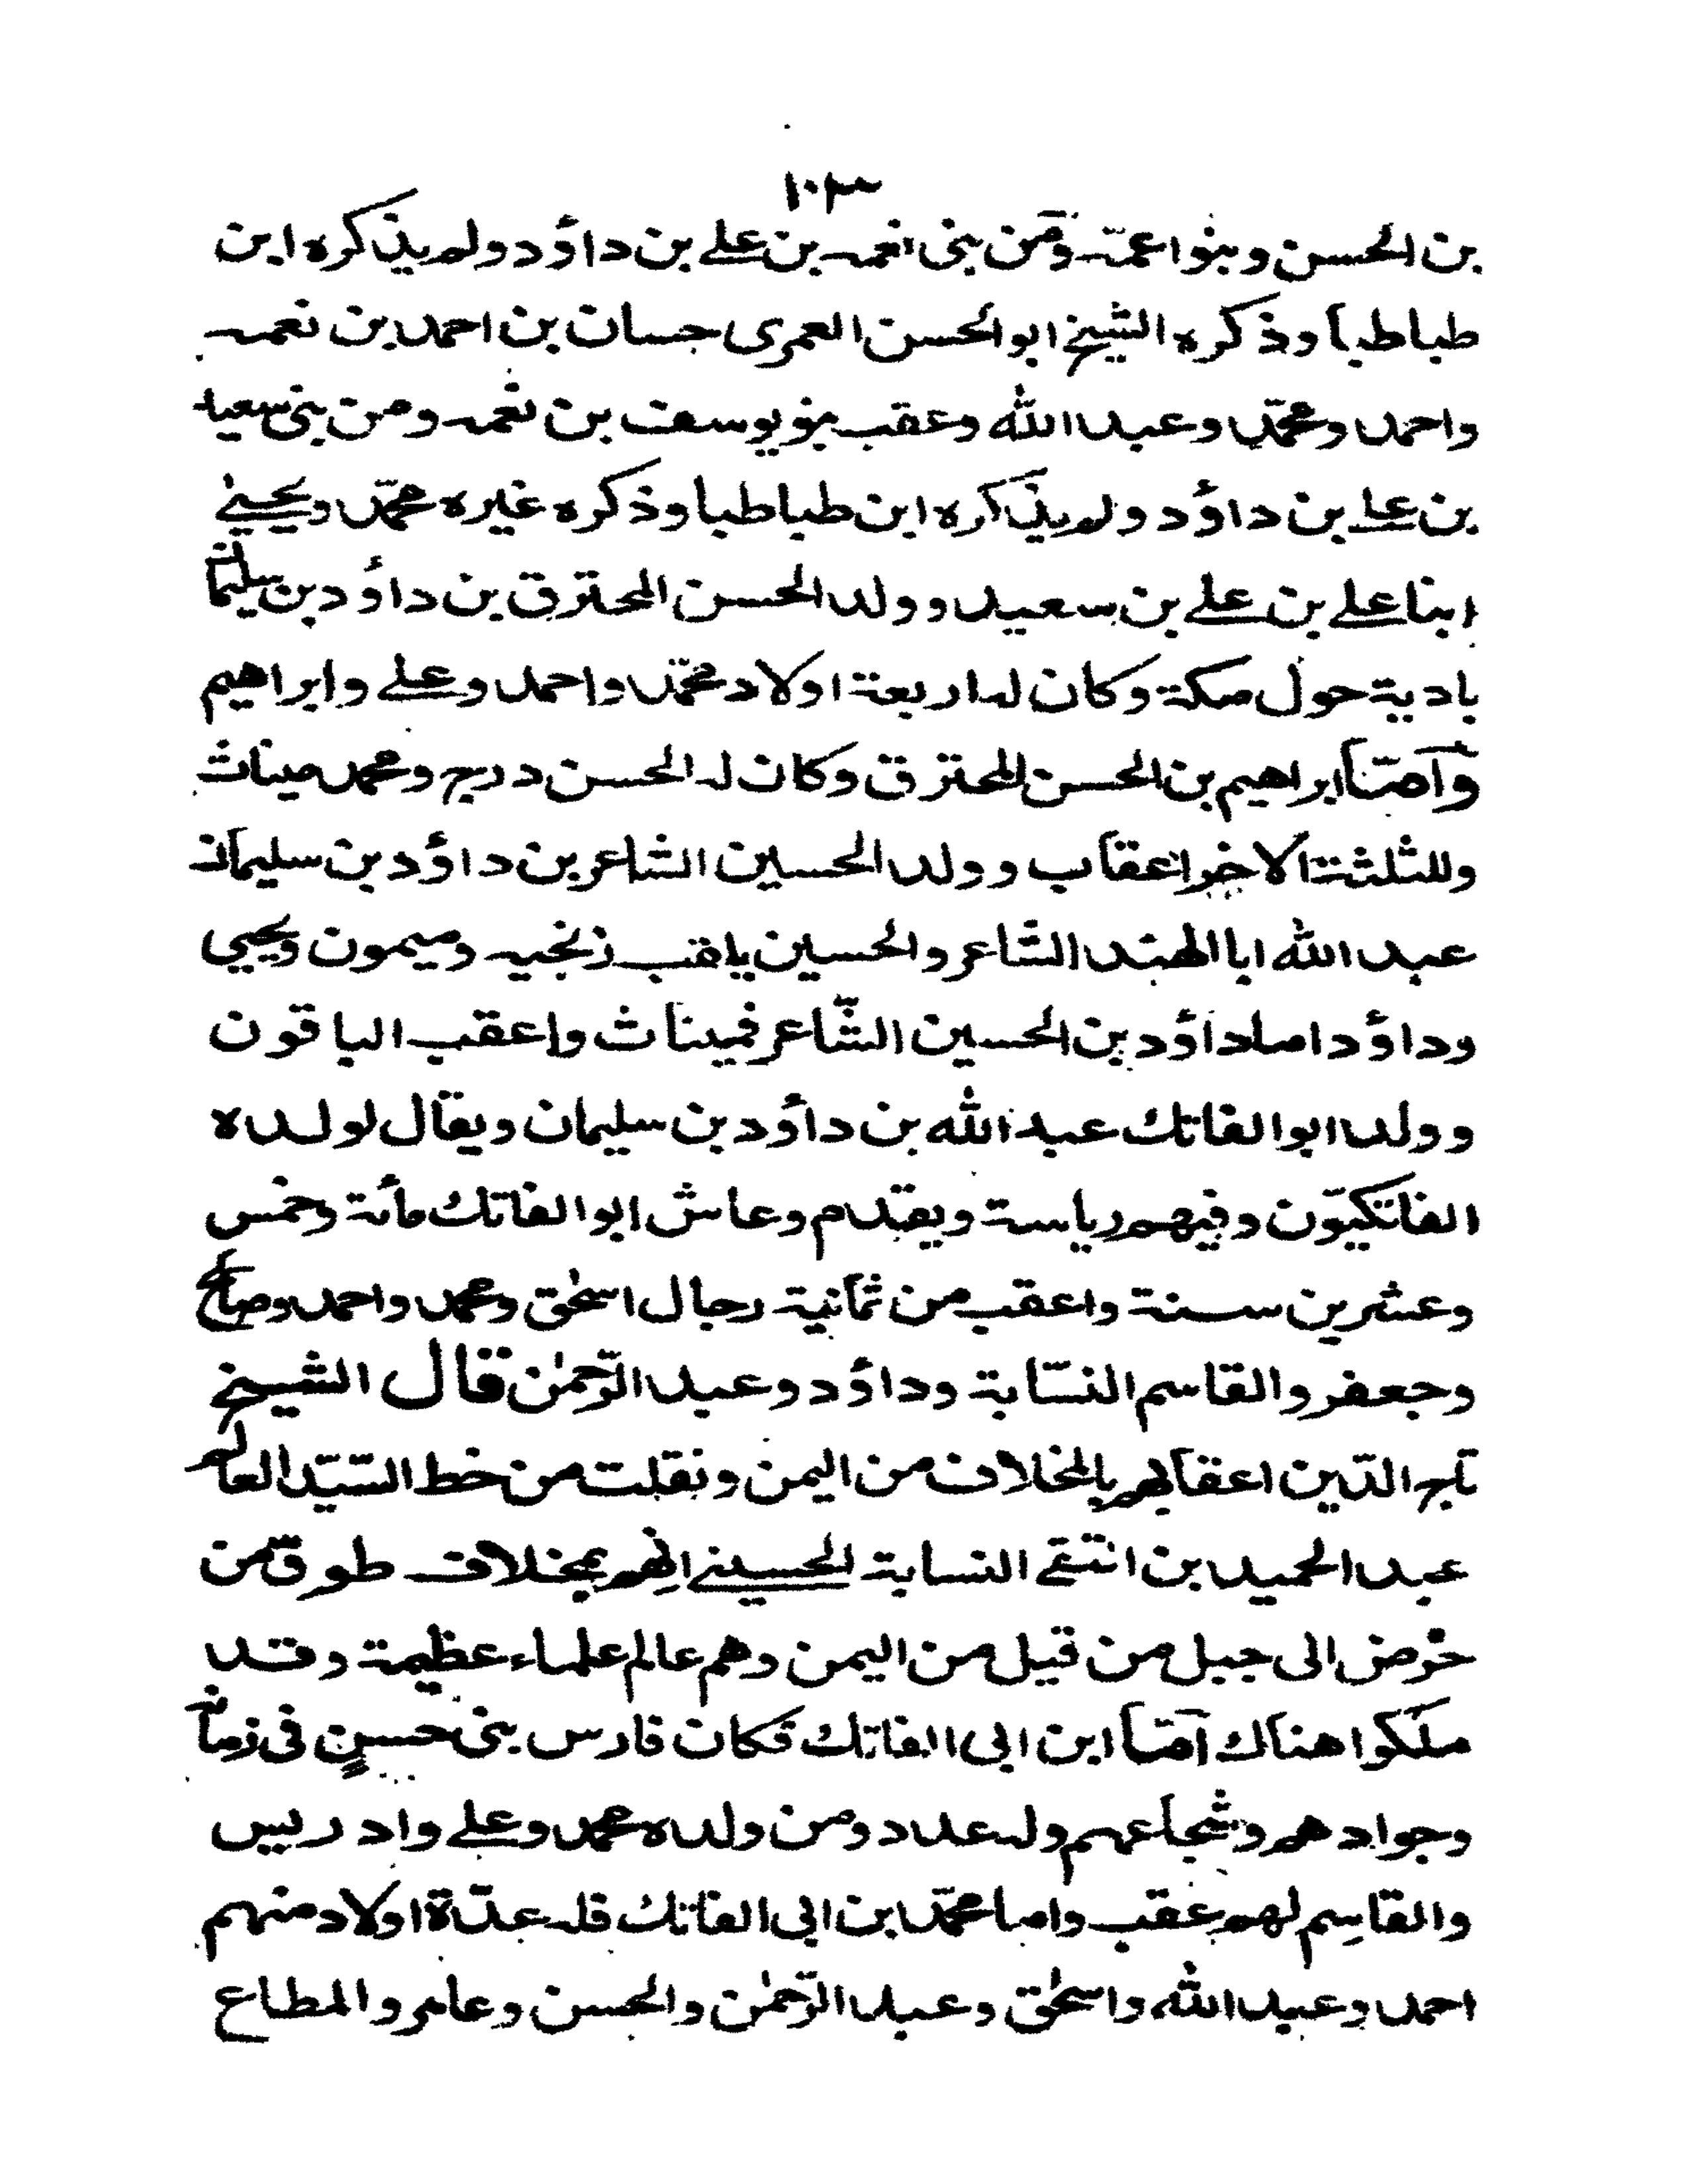 ١٠٣
بن الحسن وبنوا عمّه ومن بنى نعمه بن علے بن داؤد ولم يذكره ابن
طباطبا وذكره الشيخ ابو الحسن العمرى حسان بن احمد بن نعمه
واحمد ومحمّد وعبد الله وعقب بنو يوسف بن نعمه ومن بنى سعيد
بن علے بن داؤد ولم يذكره ابن طباطبا وذكره غيره محمّد ويحيىٰ
ابنا علے بن علے بن سعيد وولد الحسن المحترق بن داؤد بن سليمٰا
بادية حول مكة وكان له اربعة اولاد محمّد واحمد وعلے وابراهيم
وآمّا ابراهيم بن الحسن المحترق وكان له الحسن درج ومحمد ميناث
وللثلثة الاخر اعقاب وولد الحسين الشاعر بن داؤد بن سليمان
عبد الله ابا الهند الشاعر والحسين يلقب زنجيه وميمون ويحيي
وداؤد اما داؤد بن الحسين الشّاعر فميناث واعقب الباقون
وولد ابو الفاتك عبد الله بن داؤد بن سليمان ويقال لولده
الفاتكيّون وفيهم رياسة ويقدم وعاش ابو الفاتك مأئة وخمس
وعشرين سنة واعقب من ثمانية رجال اسحٰق ومحمد واحمد وصالح
وجعفر والقاسم النسّابة وداؤد وعبد الرّحمٰن قال الشيخ
تاج الدّين اعقابهم بالمخلاف من اليمن ونقلت من خط السّيّد العالم
عبد الحميد بن التقے النسابة الحسينے انهم بمخلاف طوق من
حرض الى جبل من قبل من اليمن وهم عالم علماء عظيمة وقد
ملكوا هناك آمّا ابن ابى الفاتك فكان فارس بنى حسنٍ فى زمانه
وجوادهم وشجاعهم وله عدد ومن ولده محمد وعلے وادريس
والقاسِم لهم عقب واما محمّد ابن ابى الفاتك فله عدّة اولاد منهم
احمد وعبد الله واسحٰق وعبد الرّحمٰن والحسن وعامر والمطاع